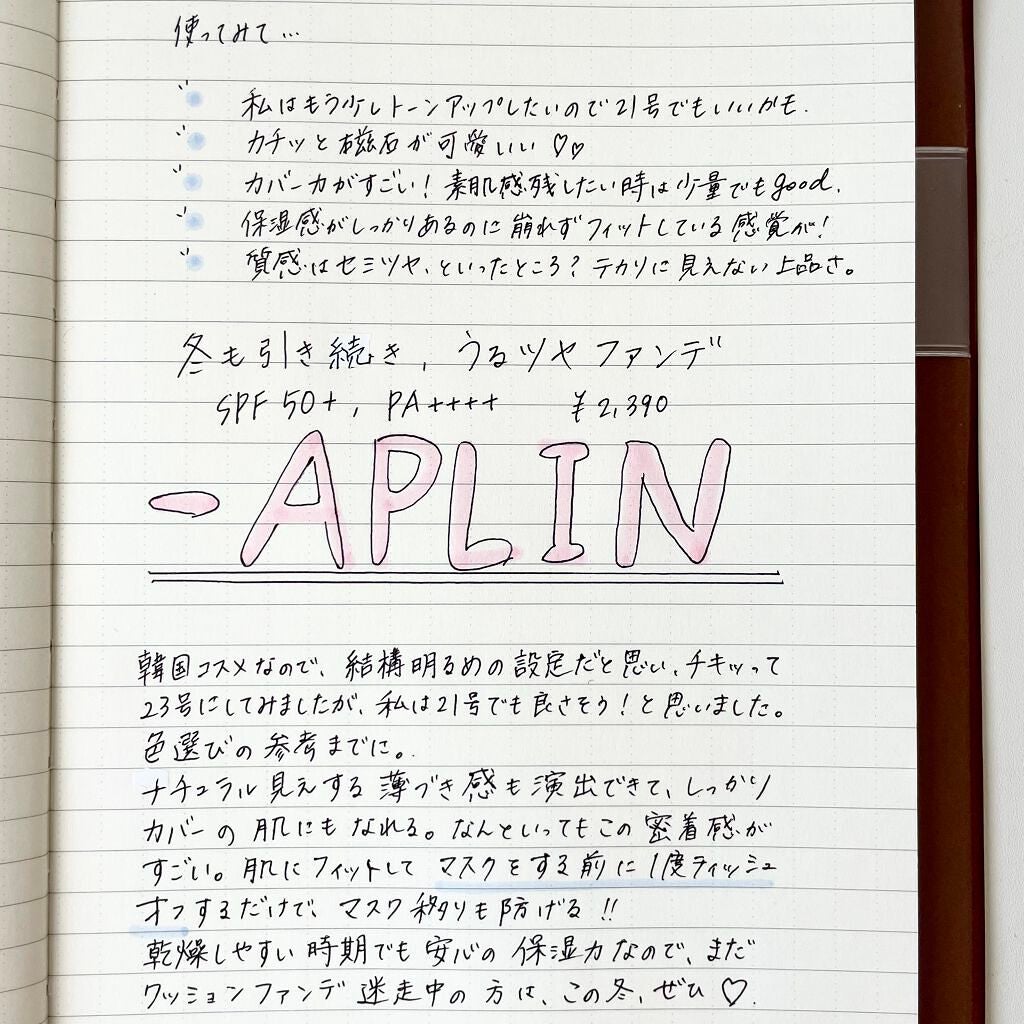 使ってみて…
私はもう少しトーンアップしたいので21号でもいいかも.
カチッと磁石が可愛いい♡♡
カバー力がすごい！素肌感残したい時は少量でもgood.
保湿感がしっかりあるのに崩れずフィットしている感覚が！
質感はセミツヤ、といったところ？テカリに見えない上品さ。
冬も引き続き、うるツヤファンデ
SPF 50+, PA++++ ¥2,390
-APLIN
韓国コスメなので、結構明るめの設定だと思い、チキって
23号にしてみましたが、私は21号でも良さそう！と思いました。
色選びの参考までに。
ナチュラル見えする薄づき感も演出できて、しっかり
カバーの肌にもなれる。なんといってもこの密着感が
すごい。肌にフィットしてマスクをする前に1度ティッシュ
オフするだけで、マスク移りも防げる!!
乾燥しやすい時期でも安心の保湿力なので、まだ
クッションファンデ迷走中の方は、この冬、ぜひ♡.